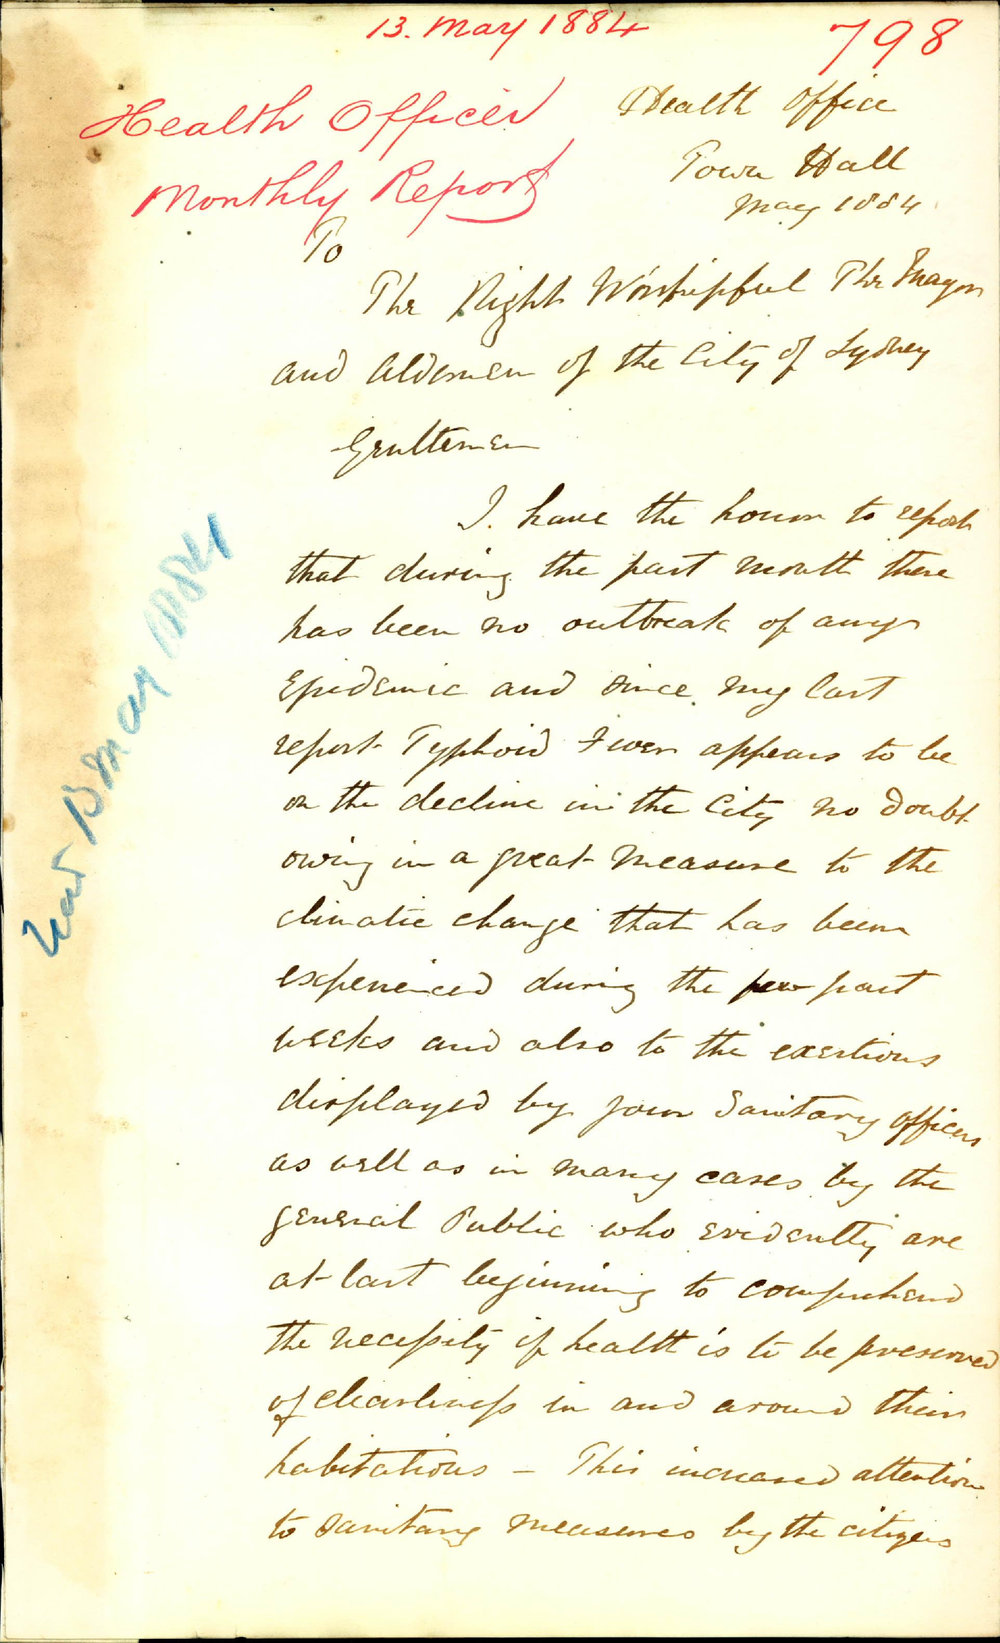 13. May 1884
798
Health Officer
Monthly Report
Health Office
Town Hall
May 1884
To
The Right Worshipful The Mayor
and Aldermen of the City of Sydney
Gentlemen
I have the honor to report
that during the past month there
has been no outbreak of any
Epidemic and since my last
report Typhoid Fever appears to be
on the decline in the City no doubt
owing in a great measure to the
climatic change that has been
experienced during the few past
weeks and also to the exertions
displayed by your Sanitary Officers
as well as in many cases by the
general Public who evidently are
at last beginning to comprehend
the necessity if health is to be preserved
of cleanliness in and around their
habitations – This increased attention
to sanitary measures by the citizens
13 May 1884